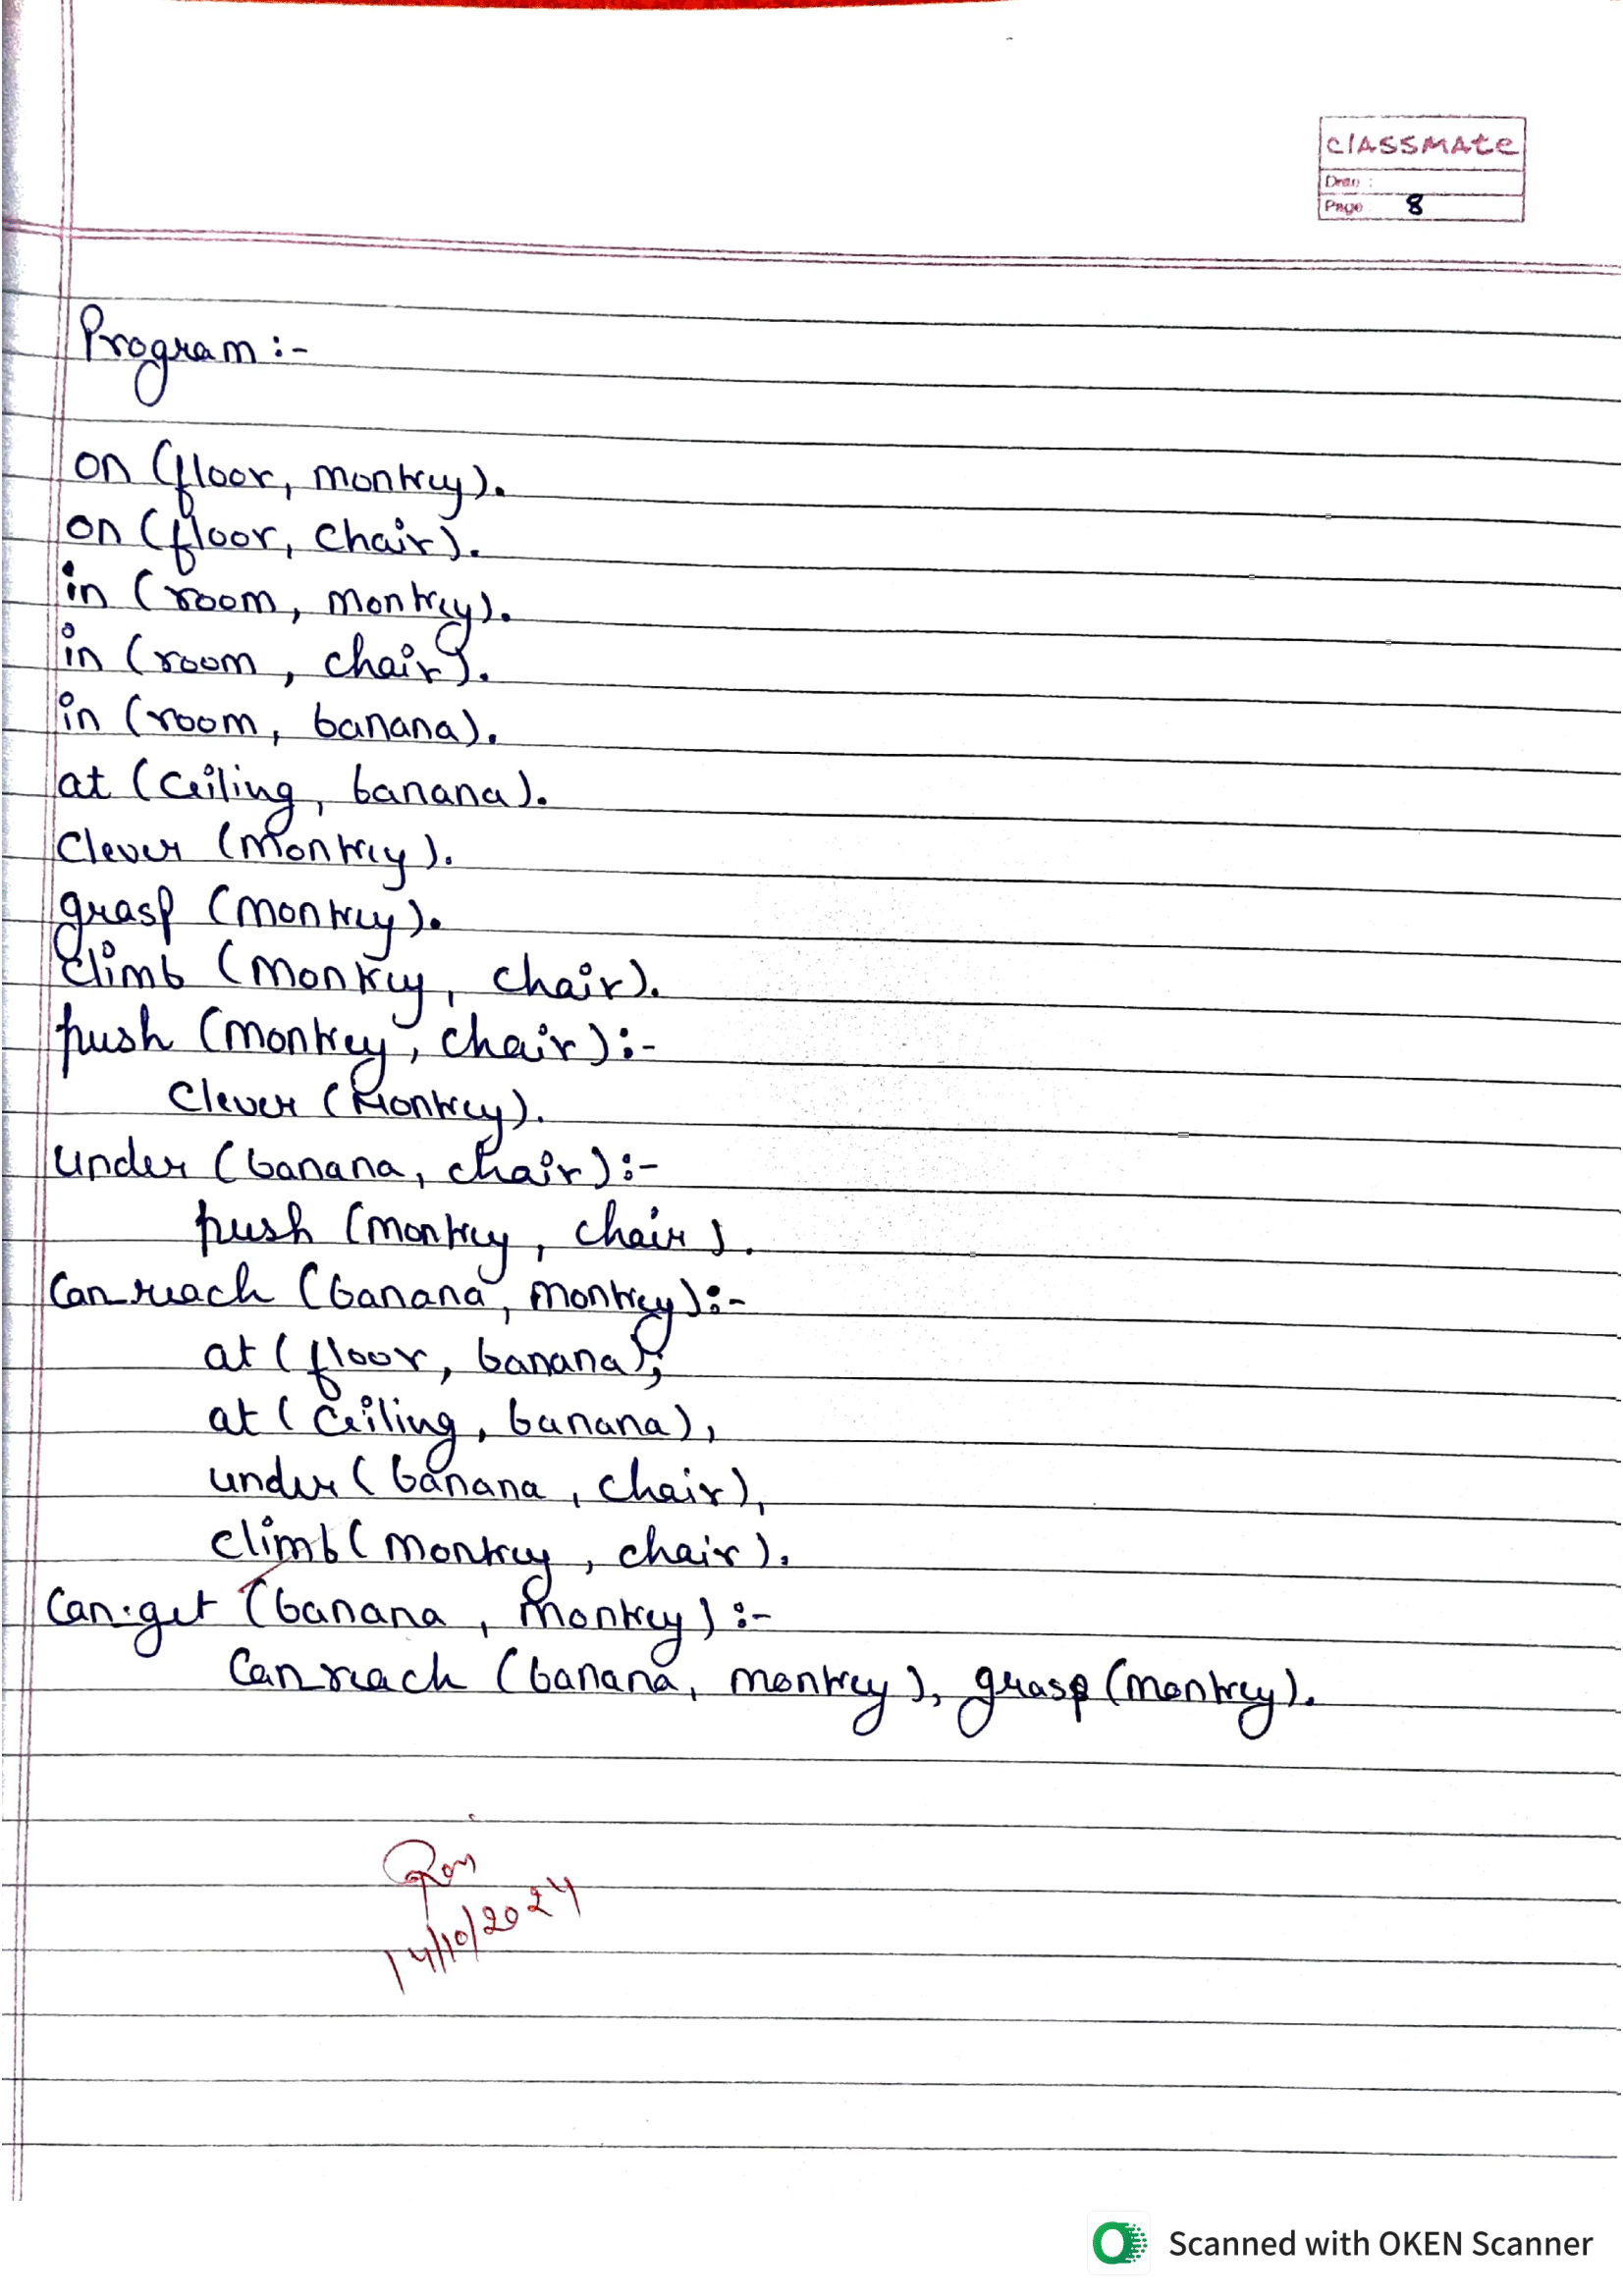 classmate
Date :
Page 8
Program :-
on (floor, monkey).
on (floor, chair).
in (room, monkey).
in (room, chair).
in (room, banana).
at (ceiling, banana).
Clever (monkey).
grasp (monkey).
climb (monkey, chair).
push (monkey, chair):-
Clever (monkey).
under (banana, chair):-
push (monkey, chair).
Can_reach (banana, monkey):-
at (floor, banana);
at (ceiling, banana),
under (banana, chair),
climb (monkey, chair).
Can.get (banana, monkey) :-
Can_reach (banana, monkey), grasp (monkey).
14/10/2024
Scanned with OKEN Scanner